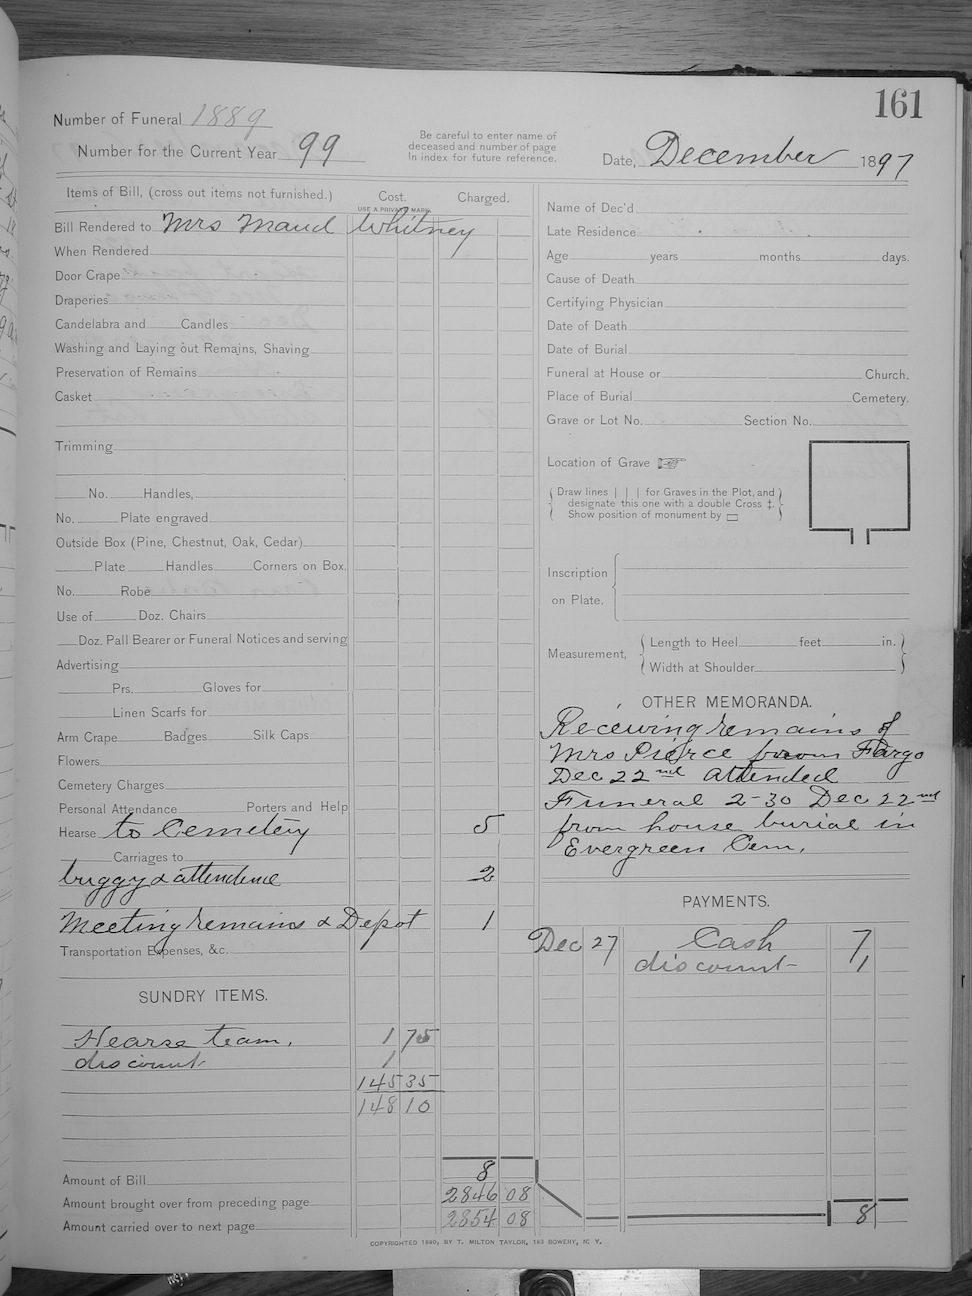 161
Number of Funeral 1889
Number for the Current Year 99
Be careful to enter name of
deceased and number of page
in index for future reference.
Date, December 1897
Items of Bill, (cross out items not furnished.) Cost. Charged.
USE A PRIVATE MARK.
Bill Rendered to Mrs Maud Whitney
When Rendered
Door Crape
Draperies
Candelabra and Candles
Washing and Laying out Remains, Shaving
Preservation of Remains
Casket
Trimming
No. Handles,
No. Plate engraved
Outside Box (Pine, Chestnut, Oak, Cedar)
Plate Handles Corners on Box.
No. Robe
Use of Doz. Chairs
Doz. Pall Bearer or Funeral Notices and serving
Advertising
Prs. Gloves for
Linen Scarfs for
Arm Crape Badges Silk Caps
Flowers
Cemetery Charges
Personal Attendance Porters and Help
Hearse to Cemetery 5
Carriages to
buggy & attendence 2
Meeting remains & Depot 1
Transportation Expenses, &c.
SUNDRY ITEMS.
Hearse team, 1 75
discount 1
145 35
148 10
Amount of Bill 8
Amount brought over from preceding page 2846 08
Amount carried over to next page 2854 08
Name of Dec'd
Late Residence
Age years months days.
Cause of Death
Certifying Physician
Date of Death
Date of Burial
Funeral at House or Church.
Place of Burial Cemetery.
Grave or Lot No. Section No.
Location of Grave ☞
Draw lines | | | for Graves in the Plot, and
designate this one with a double Cross ‡.
Show position of monument by ▭
Inscription
on Plate.
Measurement,
Length to Heel feet in.
Width at Shoulder
OTHER MEMORANDA.
Receiving remains of
Mrs Pierce from Fargo
Dec 22nd attended
Funeral 2-30 Dec 22nd
from house burial in
Evergreen Cem,
PAYMENTS.
Dec 27 Cash 7,
discount 1
8
COPYRIGHTED 1880, BY T. MILTON TAYLOR, 163 BOWERY, N. Y.